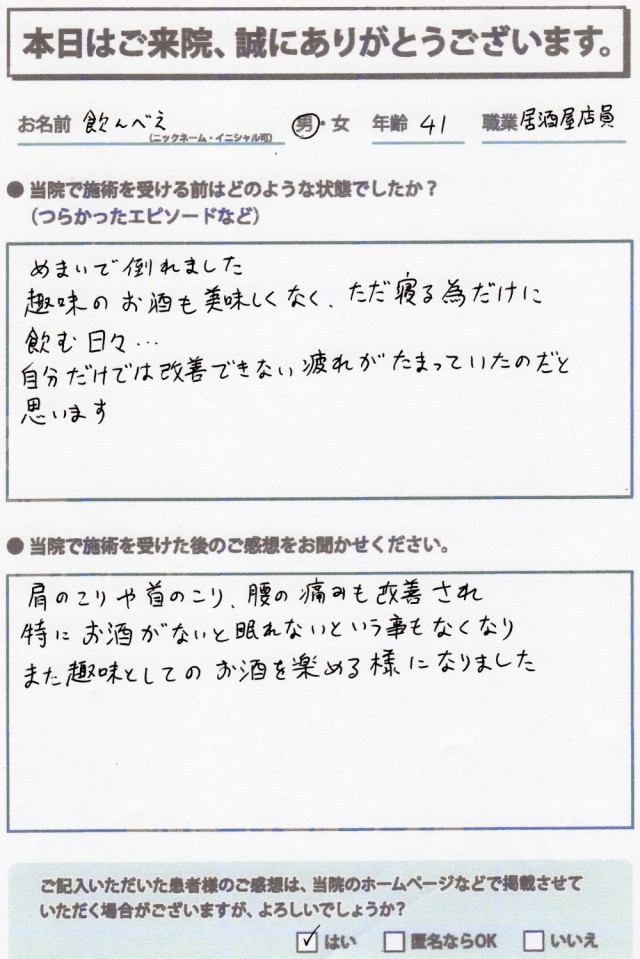 本日はご来院、誠にありがとうございます。
お名前 飲んべえ (ニックネーム・イニシャル可) 男・女 年齢 41 職業 居酒屋店員
● 当院で施術を受ける前はどのような状態でしたか？
（つらかったエピソードなど）
めまいで倒れました
趣味のお酒も美味しくなく、ただ寝る為だけに
飲む日々…
自分だけでは改善できない疲れがたまっていたのだと
思います
● 当院で施術を受けた後のご感想をお聞かせください。
肩のこりや首のこり、腰の痛みも改善され
特にお酒がないと眠れないという事もなくなり
また趣味としてのお酒を楽める様になりました
ご記入いただいた患者様のご感想は、当院のホームページなどで掲載させて
いただく場合がございますが、よろしいでしょうか？
☑ はい □ 匿名ならOK □ いいえ